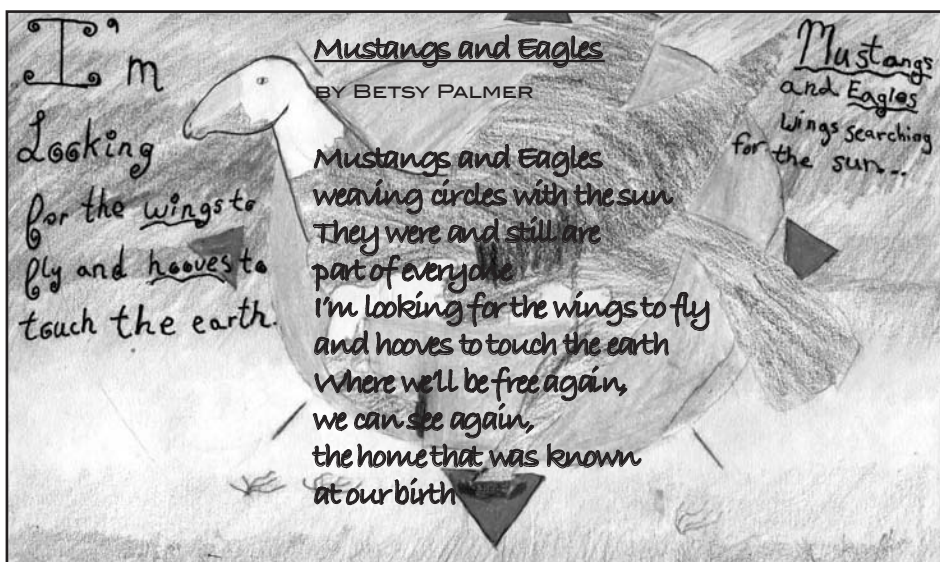 I'm
Looking
for the wings to
fly and hooves to
touch the earth.
Mustangs and Eagles
BY BETSY PALMER
Mustangs and Eagles
weaving circles with the sun
They were and still are
part of everyone
I'm looking for the wings to fly
and hooves to touch the earth
Where we'll be free again,
we can see again,
the home that was known
at our birth
Mustangs
and Eagles
wings searching
for the sun...